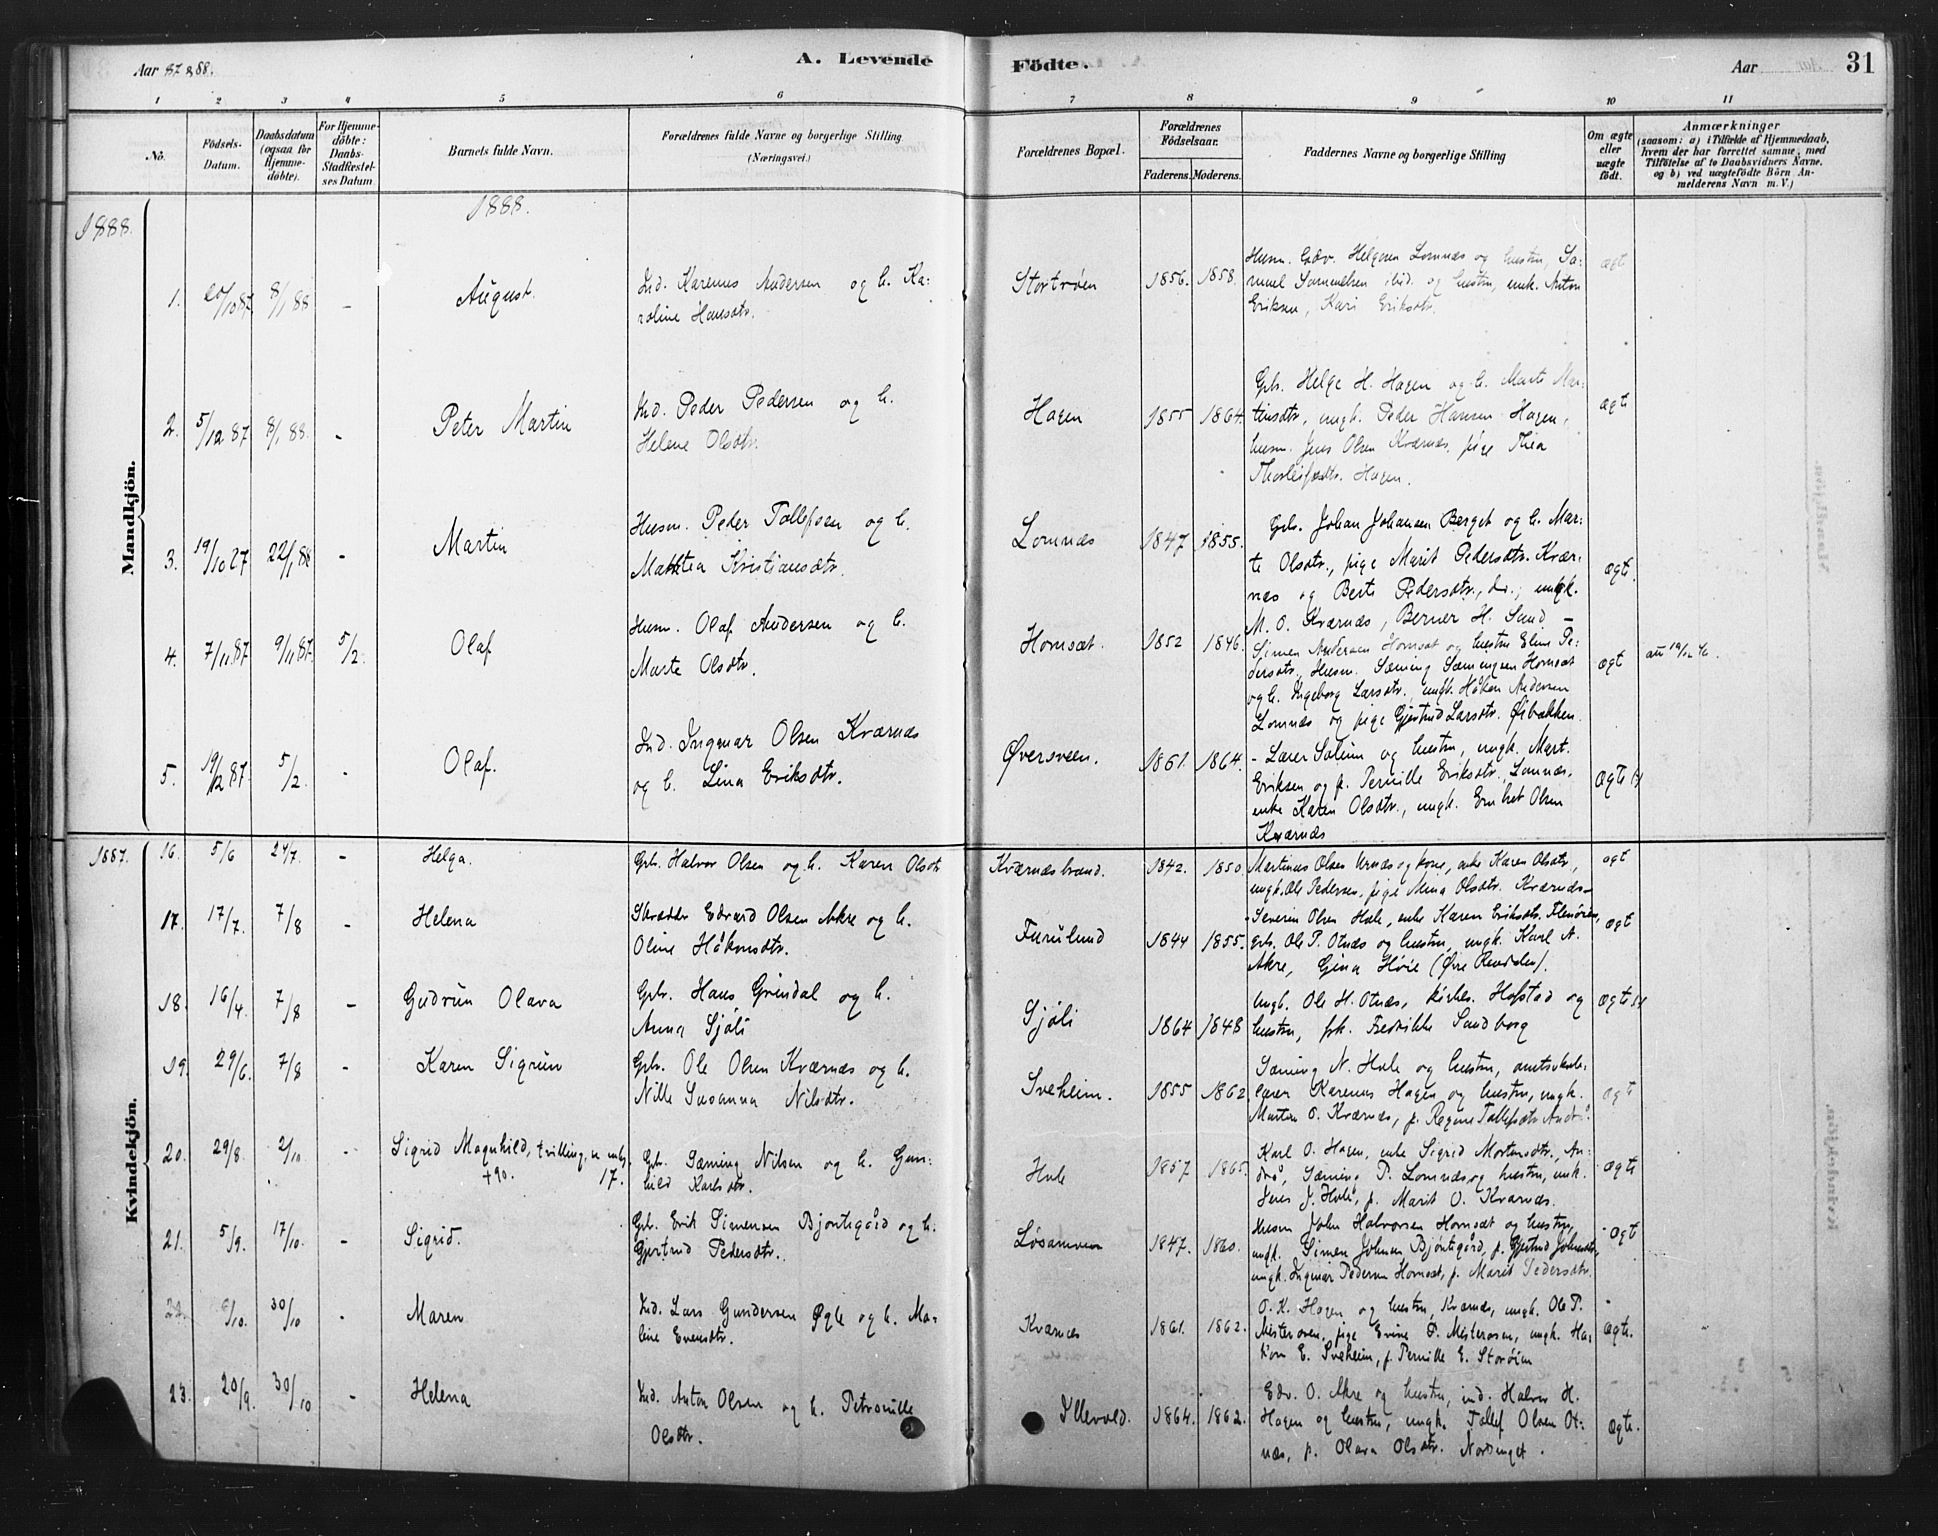 Aar 87 & 88.
A. Levende
Födte.
Aar
31
1 2 3 4 5 6 7 8 9 10 11
No.
Födsels-Datum.
Daabsdatum (ogsaa for Hjemme-döbte).
For Hjemme-döbte: Daabs-Stadfæstel-ses Datum
Barnets fulde Navn.
Forældrenes fulde Navne og borgerlige Stilling (Næringsvei.)
Forældrenes Bopæl.
Forældrenes Födselsaar.
Faderens. Moderens.
Faddernes Navne og borgerlige Stilling
Om ægte eller uægte födt.
Anmærkninger
(saasom: a) i Tilfælde af Hjemmedaab, hvem der har forrettet samme, med Tilföielse af to Daabsvidners Navne, og b) ved uægtefödte Börn An-melderens Navn m. V.)
1888.
1888.
Mandkjön.
1. 20/10 87 8/1 88 - August. Ind. Karenus Andersen og h. Ka-
roline Hansdtr.
Stortrøen 1856. 1858.
Husm. Edv. Helgesen Lomnæs og hustru, Sa-
muel Samuelsen ibid. og hustru, umk. Anton
Eriksen, Kari Eriksdtr.
ægt
2. 5/12 87 8/1 88. - Peter Martin Ind. Peder Pedersen og h.
Helene Olsdtr.
Hagen 1855 1864.
Gbr. Helge H. Hagen og h. Marte Mar-
tinsdtr, ungk. Peder Hansen Hagen,
husm. Jens Olsen Kværnæs, pige Thea
Thorleifsdtr. Hagen.
ægte
3. 19/10 87 22/1 88 - Martin Husm. Peder Tollefsen og h.
Mathea Kristiansdtr.
Lomnæs 1847 1855.
Gbr. Johan Johansen Berget og h. Mar-
te Olsdtr., pige Marit Pedersdtr. Kvær-
næs og Berte Pedersdtr., do.; ungk.
M. O. Kværnæs, Berner H. Sand -
ægte
4. 7/11 87 9/11 87. 5/2. Olaf Husm. Olaf Andersen og h.
Marte Olsdtr.
Hornset. 1852 1846.
Simen Andersen Hornset og hustru Eline Pe-
dersdtr, Husm. Sæming Sæmingsen Hornset
og h. Ingeborg Larsdtr., ungk. Håkon Andersen
Lomnæs og pige Gjertrud Larsdtr. Øibækken.
ægt
5. 19/12 87. 5/2. - Olaf. Ind. Ingvar Olsen Kværnæs
og h. Lina Eriksdtr.
Øversveen. 1861. 1864.
- Lærer Solum og hustru, ungk. Mart.
Eriksen og p. Pernille Eriksdtr. Lomnæs.
enke Karen Olsdtr., ungk. Embret Olsen
Kværnæs
Ægte
1887.
Kvindekjön.
16. 5/6 24/7. - Helga. Gbr. Halvor Olsen og h. Karen Olsdtr
Kværnæsbrænd. 1842. 1850.
Martinus Olsen Urnæs og kone, enke Karen Olsdtr,
ungk. Ole Pedersen, pige Mina Olsdtr. Kværnæs -
ægt
17. 17/7. 7/8 - Helena Skrædder Edvard Olsen Akre og h.
Oline Håkonsdtr.
Furulund 1844 1855.
Severin Olsen Hole, enke Karen Eriksdtr.
gbr. Ole P. Otnæs og hustru, ungk. Karl A.
Akre, Gina Høie (Øvre Rendalen).
ægt
18. 16/4. 7/8 - Gudrun Olava Gbr. Hans Grindal og h.
Anna Sjøli
Sjøli 1864 1848
Ungk. Ole H. Otnæs, kirkes. Hofstad og
hustru, frk. Fredrikke Sandborg
ægte
19. 29/6. 7/8 - Karen Sigrun Gbr. Ole Olsen Kværnæs og h.
Nille Susanna Nilsdtr.
Sveheim. 1855 1862.
Sæming N. Hole og hustru, amtsskole-
lærer Karenus Hagen og hustru, ungk.
Morten O. Kværnæs, p. Regine Tollefsdtr. Andrå
ægt
20. 29/8. 2/10. - Sigrid Magnhild, tvilling,
17.
Gbr. Sæming Nilsen og h. Gun-
hild Karlsdtr.
Hole 1857 1865.
Karl O. Hagen, enke Sigrid Mortensdtr., An-
drå, Sæming P. Lomnæs og hustru, umk.
Jens J. Hole, p. Marit O. Kværnæs.
ægte
21. 5/9. 17/10. - Sigrid. Gbr. Erik Simensen Bjøntegård og h.
Gjertrud Pedersdtr.
Løsamoen 1847. 1860.
Husm John Halvorsen Hornset og hustru,
ungk. Simen Johnsen Bjøntegård, p. Gjertrud Johnsdtr,
ungk. Ingvar Pedersen Hornset, p. Marit Pedersdtr.
ægt
22. /10. 30/10 - Maren Ind. Lars Gundersen Øgle og h. Ma-
line Evensdtr.
Kværnæs 1861. 1862.
O. K. Hagen og hustru, Kværnæs, ungk. Ole P.
Misterosen, pige Evine P. Misterosen, ungk. Ha-
kon E. Sveheim, p. Pernille E. Storøien
ægte.
23. 20/9. 30/10 - Helena Ind. Anton Olsen og h. Petronille
Olsdtr.
Illevold. 1864. 1862.
Edv. O. Akre og hustru, ind. Halvor H.
Hagen og hustru, ungk. Tollef Olsen Ot-
næs, p. Olava Olsdtr. Nordenget.
ægte.